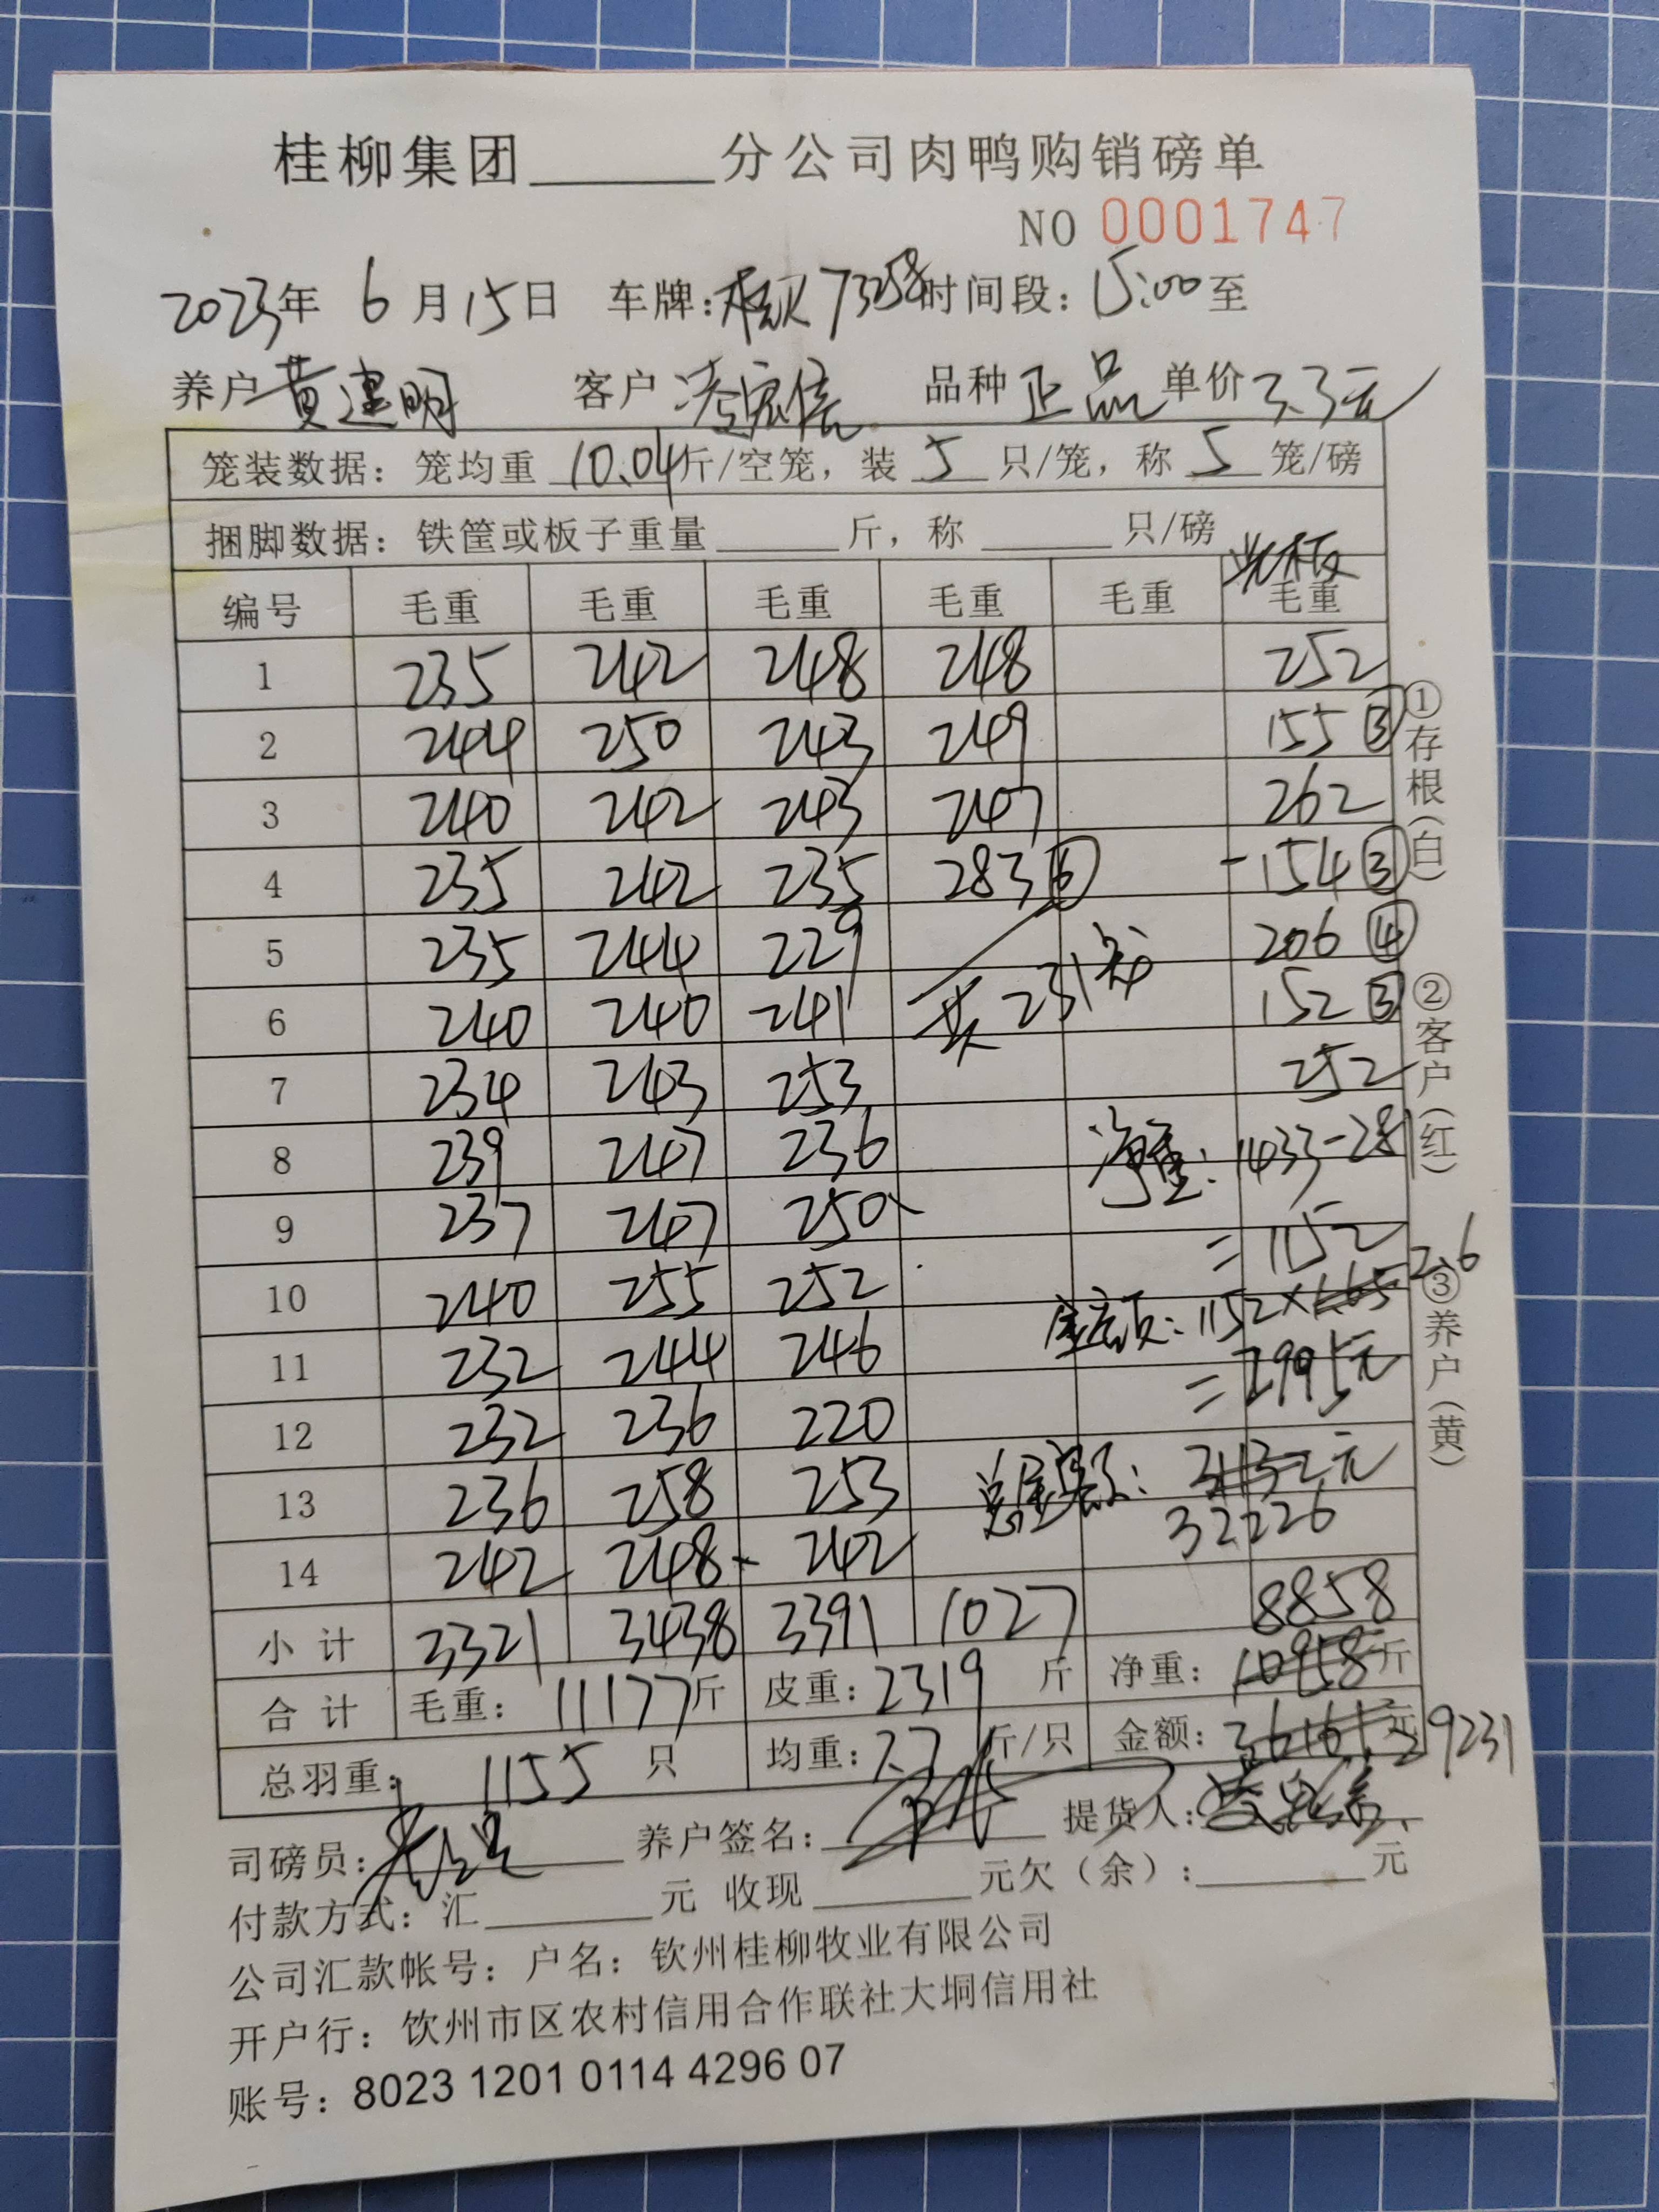 桂柳集团______分公司肉鸭购销磅单
NO 0001747
2023年 6月15日 车牌: 73258 时间段: 15:00至
养户 黄建明 客户 凌宏信 品种 正品 单价 3.3元
笼装数据: 笼均重 10.04斤/空笼, 装 5 只/笼, 称 5 笼/磅
捆脚数据: 铁筐或板子重量______斤, 称______只/磅
光板
编号 毛重 毛重 毛重 毛重 毛重 毛重
1 235 242 248 248 252
2 244 250 243 249 155 ③
3 240 242 243 247 262
4 235 242 235 283 ⑥ -154 ③
5 235 244 229 206 ④
6 240 240 241 共231笼 152 ③
7 234 243 253 252
8 239 247 236 净重: 1433-281
9 237 247 250 =1152
10 240 255 252 金额: 1152×2.6
11 232 244 246 =2995元
12 232 236 220
13 236 258 253 总金额: 元
32226
14 242 248 242
小计 3321 3438 3391 1027 8858
合计 毛重: 11177斤 皮重: 2319 斤 净重: 斤
总羽重: 1155 只 均重: 7.7 斤/只 金额: 元 29231
司磅员: 养户签名: 提货人:
付款方式: 汇______元 收现______元欠(余):______元
公司汇款帐号: 户名: 钦州桂柳牧业有限公司
开户行: 钦州市区农村信用合作联社大垌信用社
账号: 8023 1201 0114 4296 07
①存根(白) ②客户(红) ③养户(黄)